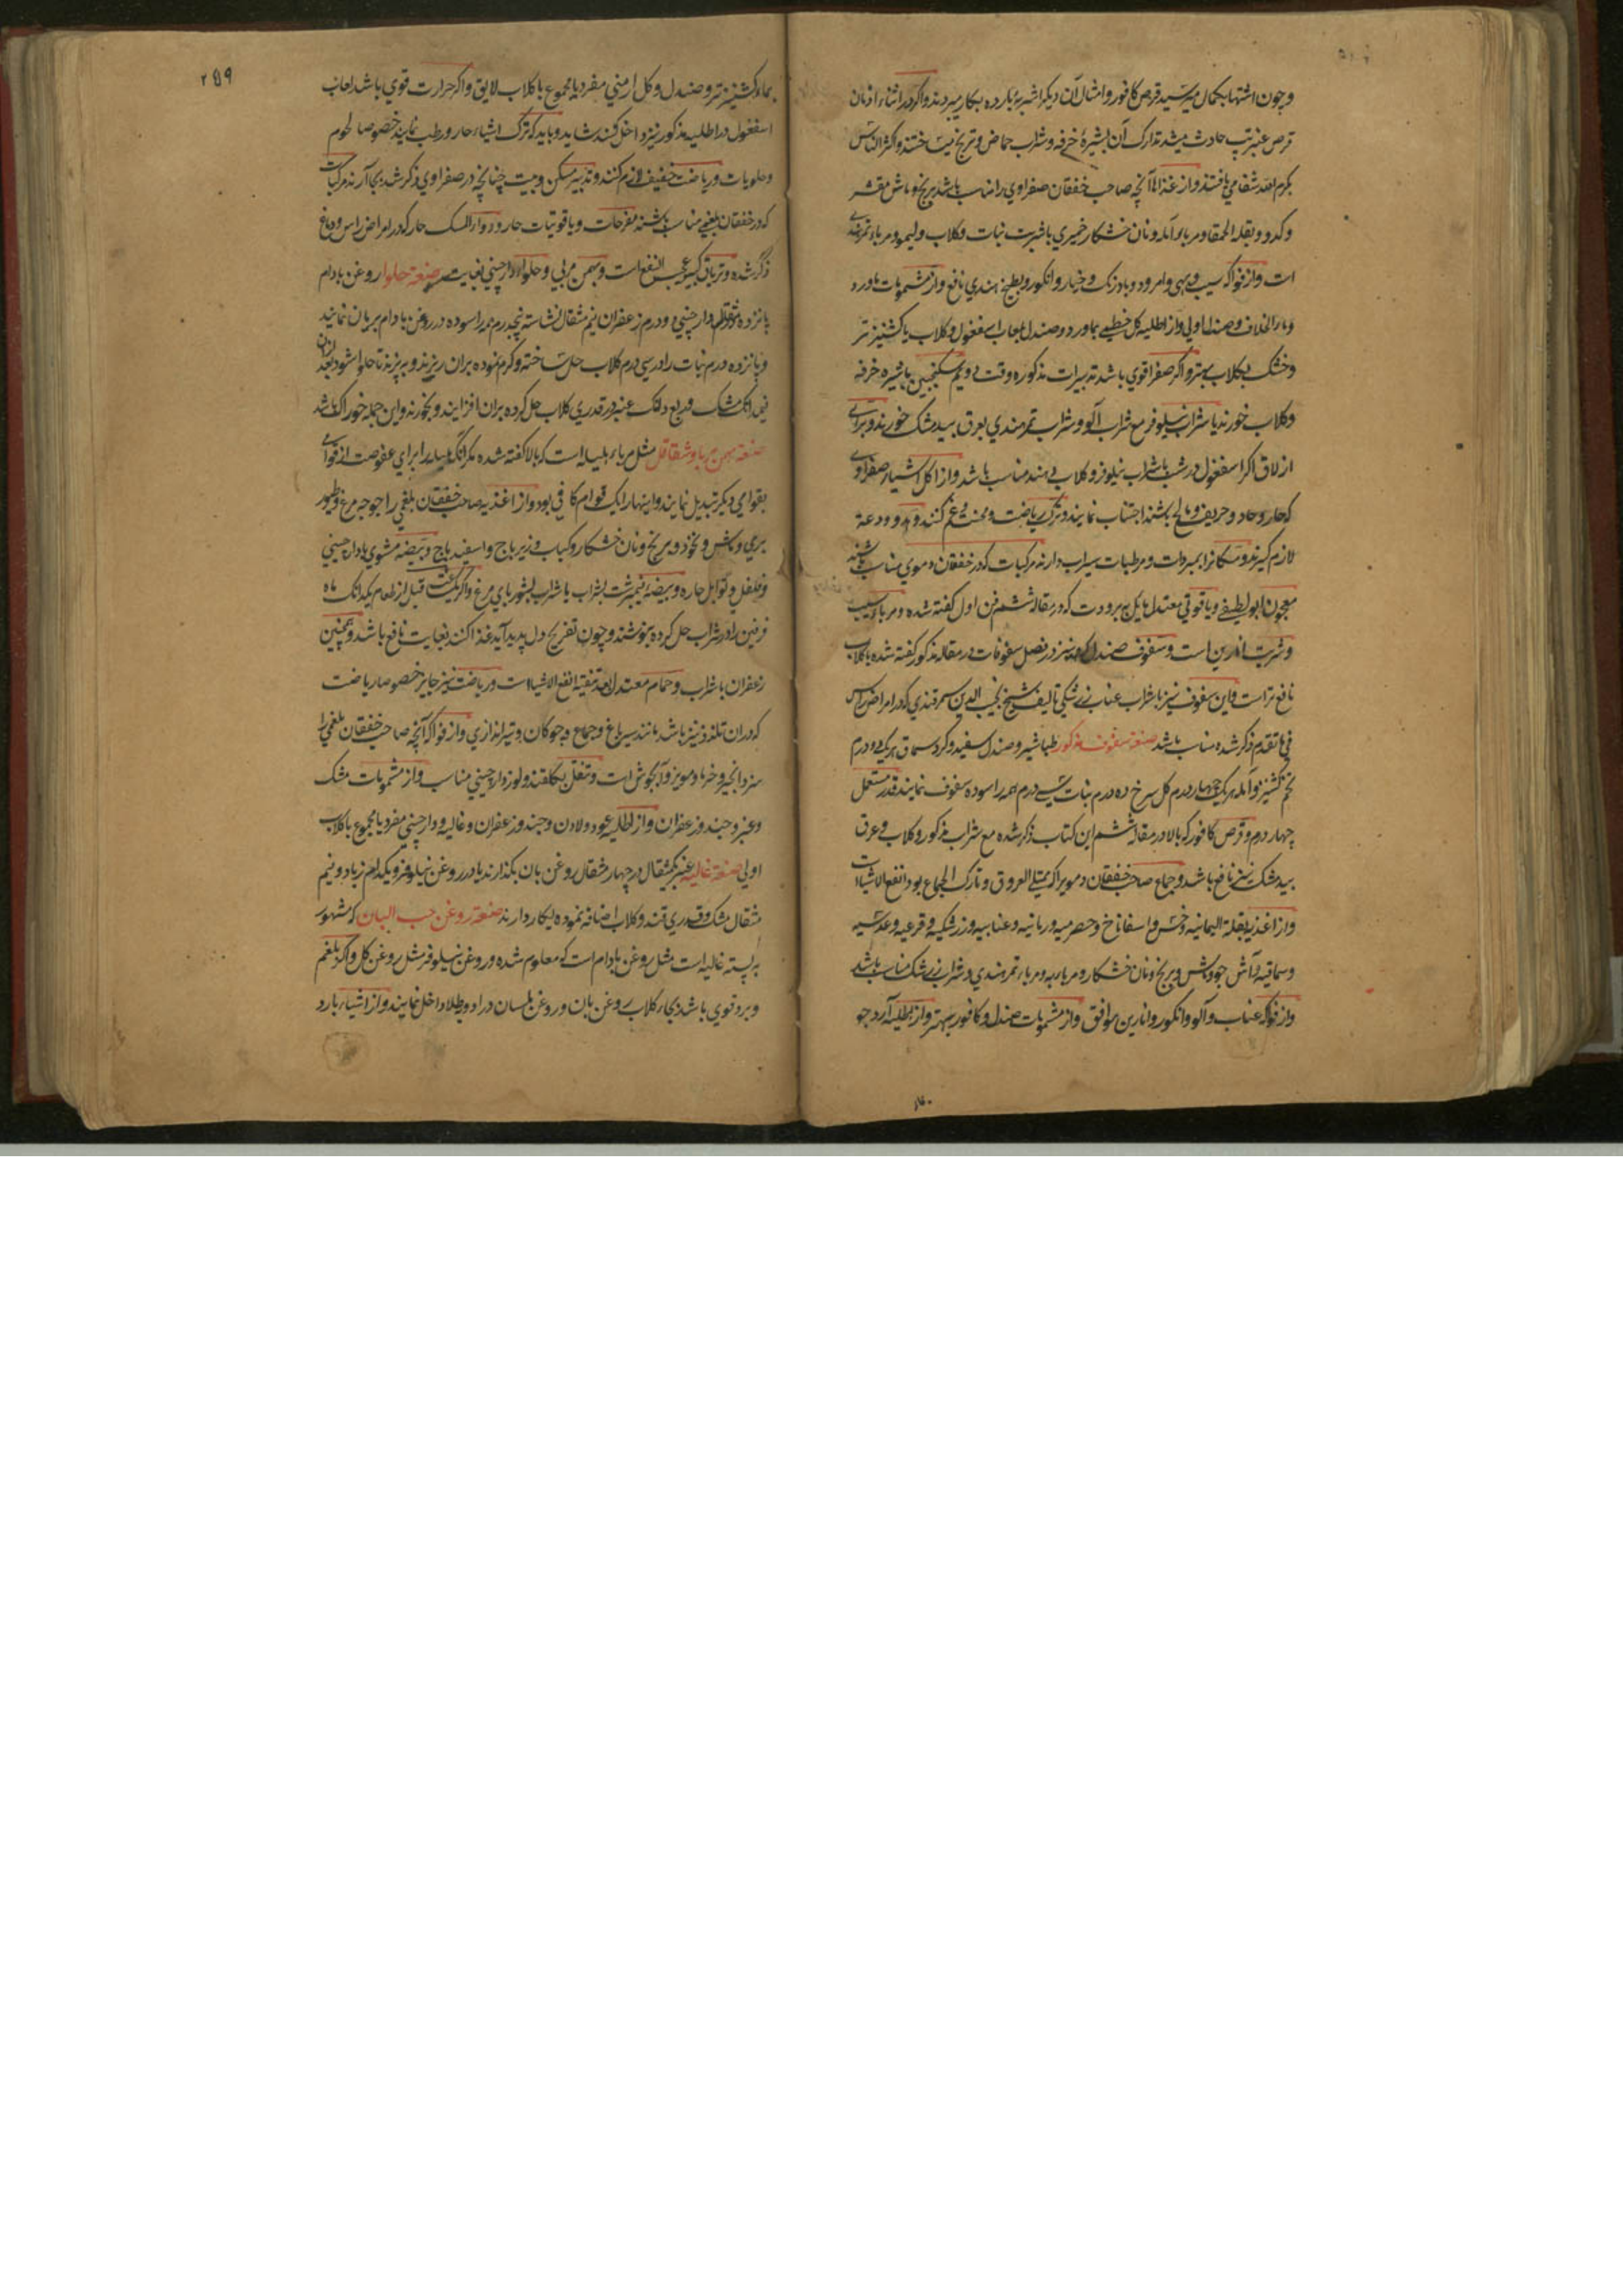 وچون اشتها بکمال میرسید قرص کافور وامثال آن دیکر اشربهٔ بارده بکار میبردند واکر در اثناء ادمان
قرص عنبر تپ حادث میشد تدارک آن بشیرهٔ خرفه وشراب حماض وترنج میساختند واکثر الناس
بکرم الله شفا می یافتند واز غذاها آنچه صاحب خفقان صفراوی را مناسب باشد برنج وماش مقشر
وکدو وبقلة الحمقا ومرباء آمله ونان خشکار خمیری با شربت نبات وکلاب ولیمو ومرباء تمرهندی
است واز فواکه سیب وبهی وامرود وبادرنک وخیار وانکور وبطیخ هندی نافع واز مشمومات ماورد
وماء الخلاف وصندل اولی واز اطلیه کل خطمی بماورد وصندل بلعاب اسفغول وکلاب یا کشنیز تر
وخشک بکلاب بهتر واکر صفرا قوی باشد تدبیرات مذکوره وقت سکنجبین با شیره خرفه
وکلاب خورند یا شراب نیلوفر مع شراب آلو وشراب تمرهندی بعرق بیدمشک خورند وبرای
ازلاق اکر اسفغول در شب با شراب نیلوفر وکلاب دهند مناسب باشد واز اکل اشیاء صفراوی
که حار وحاد وحریف ومالح باشند اجتناب نمایند وترک ریاضت ومحنت وغم کنند ودعة
لازم کیرند ومسکانرا بمبردات ومرطبات سیراب دارند مرکبات که در خفقان دموی مناسب باشند
معجون ابو لطیفی ویاقوتی معتدل مایل به برودت که در مقاله ششم فن اول کفته شده ومرباء سیب
وشربت انارین است وسفوف صندل که نیز در فصل سفوفات در مقاله مذکور کفته شده با کلاب
نافع تر است واین سفوف نیز با شراب عناب زرشکی تالیف شیخ نجیب الدین سمرقندی که در امراض راس
فی ما تقدم ذکر شده مناسب باشد صنعة سفوف مذکور طباشیر وصندل سفید وکرد سماق هر یک دو درم
تخم کشنیز وآمله هر یک چهار درم کل سرخ ده درم نبات سی درم همه را سوده سفوف نمایند قدر مستعمل
چهار درم وقرص کافور که بالا در مقاله ششم این کتاب ذکر شده مع شراب مذکور وکلاب وعرق
بیدمشک نیز نافع باشد وجماع صاحب خفقان دموی را اکر ممتلی العروق وتارک الجماع بود انفع الاشیاست
واز اغذیه بقلة الیمانیه وخس واسفاناخ وحصرمیه ورمانیه وعنابیه وزرشکیه وقرعیه وعدسیه
وسماقیه وآش جو وماش وبرنج ونان خشکار ومرباء به ومرباء تمرهندی وشراب زرشک مناسب باشد
واز فواکه عناب وآلو وانکور وانارین موافق واز مشمومات صندل وکافور بهتر واز اطلیه آرد جو
۲۵۹
بماء کشنیز تر وصندل وکل ارمنی مفرد یا مجموع با کلاب لایق واکر حرارت قوی باشد لعاب
اسفغول در اطلیه مذکور نیز داخل کنند شاید وباید که ترک اشیاء حار ورطب نمایند خصوصا لحوم
وحلویات وریاضت خفیف لازم کنند وتدبیر مسکن وبیت چنانچه در صفراوی ذکر شد بجا آرند مرکبات
که در خفقان بلغمی مناسب باشند مفرحات ویاقوتیات حار ودواء المسک حار که در امراض راس ودماغ
ذکر شده وتریاق کبیر عجب النفع است وبهمن مربی وحلواء دارچینی صنعة حلوا روغن بادام
پانزده مثقال دارچینی دو درم زعفران نیم مثقال نشاسته پنجدرم همه را سوده در روغن بادام بریان نمایند
وپانزده درم نبات را در سی درم کلاب حل ساخته وکرم نموده بران ریزند وبپزند تا حلوا شود بعد ازان
نیمدانک مشک وربع دانک عنبر در قدری کلاب حل کرده بران افزایند وبخورند واین جمله خوراک باشد
صنعة بهمن مربا وشقاقل مثل مرباء هلیله است که بالا کفته شده مکر آنکه هلیله را برای عفوصت از قوامی
بقوامی دیکر تبدیل نمایند واینها را یک قوام کافی بود واز اغذیه صاحب خفقان بلغمی را جوجه مرغ وطیور
بری وماش ونخود وبرنج ونان خشکار وکباب وزیرباج واسفیدباج وبیضه مشوی با دارچینی
وفلفل وتوابل حاره وبیضهٔ نیمبرشت بشراب یا شراب بشوربای مرغ واکر یک ساعت قبل از طعام یکدانک ماه
فرفین را در شراب حل کرده بنوشند وچون تفریح دل پدید آید غذا کنند بغایت نافع باشد وهمچنین
زعفران با شراب وحمام معتدل بعد تنقیه انفع الاشیا است وریاضت نیز جایز خصوصا ریاضت
که دران تلذذ نیز باشد مانند سیر باغ وجماع وچوکان وتیراندازی واز فواکه آنچه صاحب خفقان بلغمی را
سزد انجیر وخرما ومویز وآبجوش است وتنقل بکلقند ولوز دارچینی مناسب واز مشمومات مشک
وعنبر وجند وزعفران واز اطلیه عود ولادن وجند وزعفران وغالیه ودارچینی مفرد یا مجموع با کلاب
اولی صنعة غالیه عنبر یکمثقال در چهار مثقال روغن بان بکدازند یا در روغن نیلوفر ویکدام زباد ونیم
مثقال مشک وقدری قند وکلاب اضافه نموده بکار دارند صنعة روغن حب البان که مشهور
به پسته غالیه است مثل روغن بادام است که معلوم شده وروغن نیلوفر مثل روغن کل واکر بلغم
وبرد قوی باشد بجاء کلاب روغن بان وروغن بلسان در ادویه طلا داخل نمایند واز اشیاء بارد